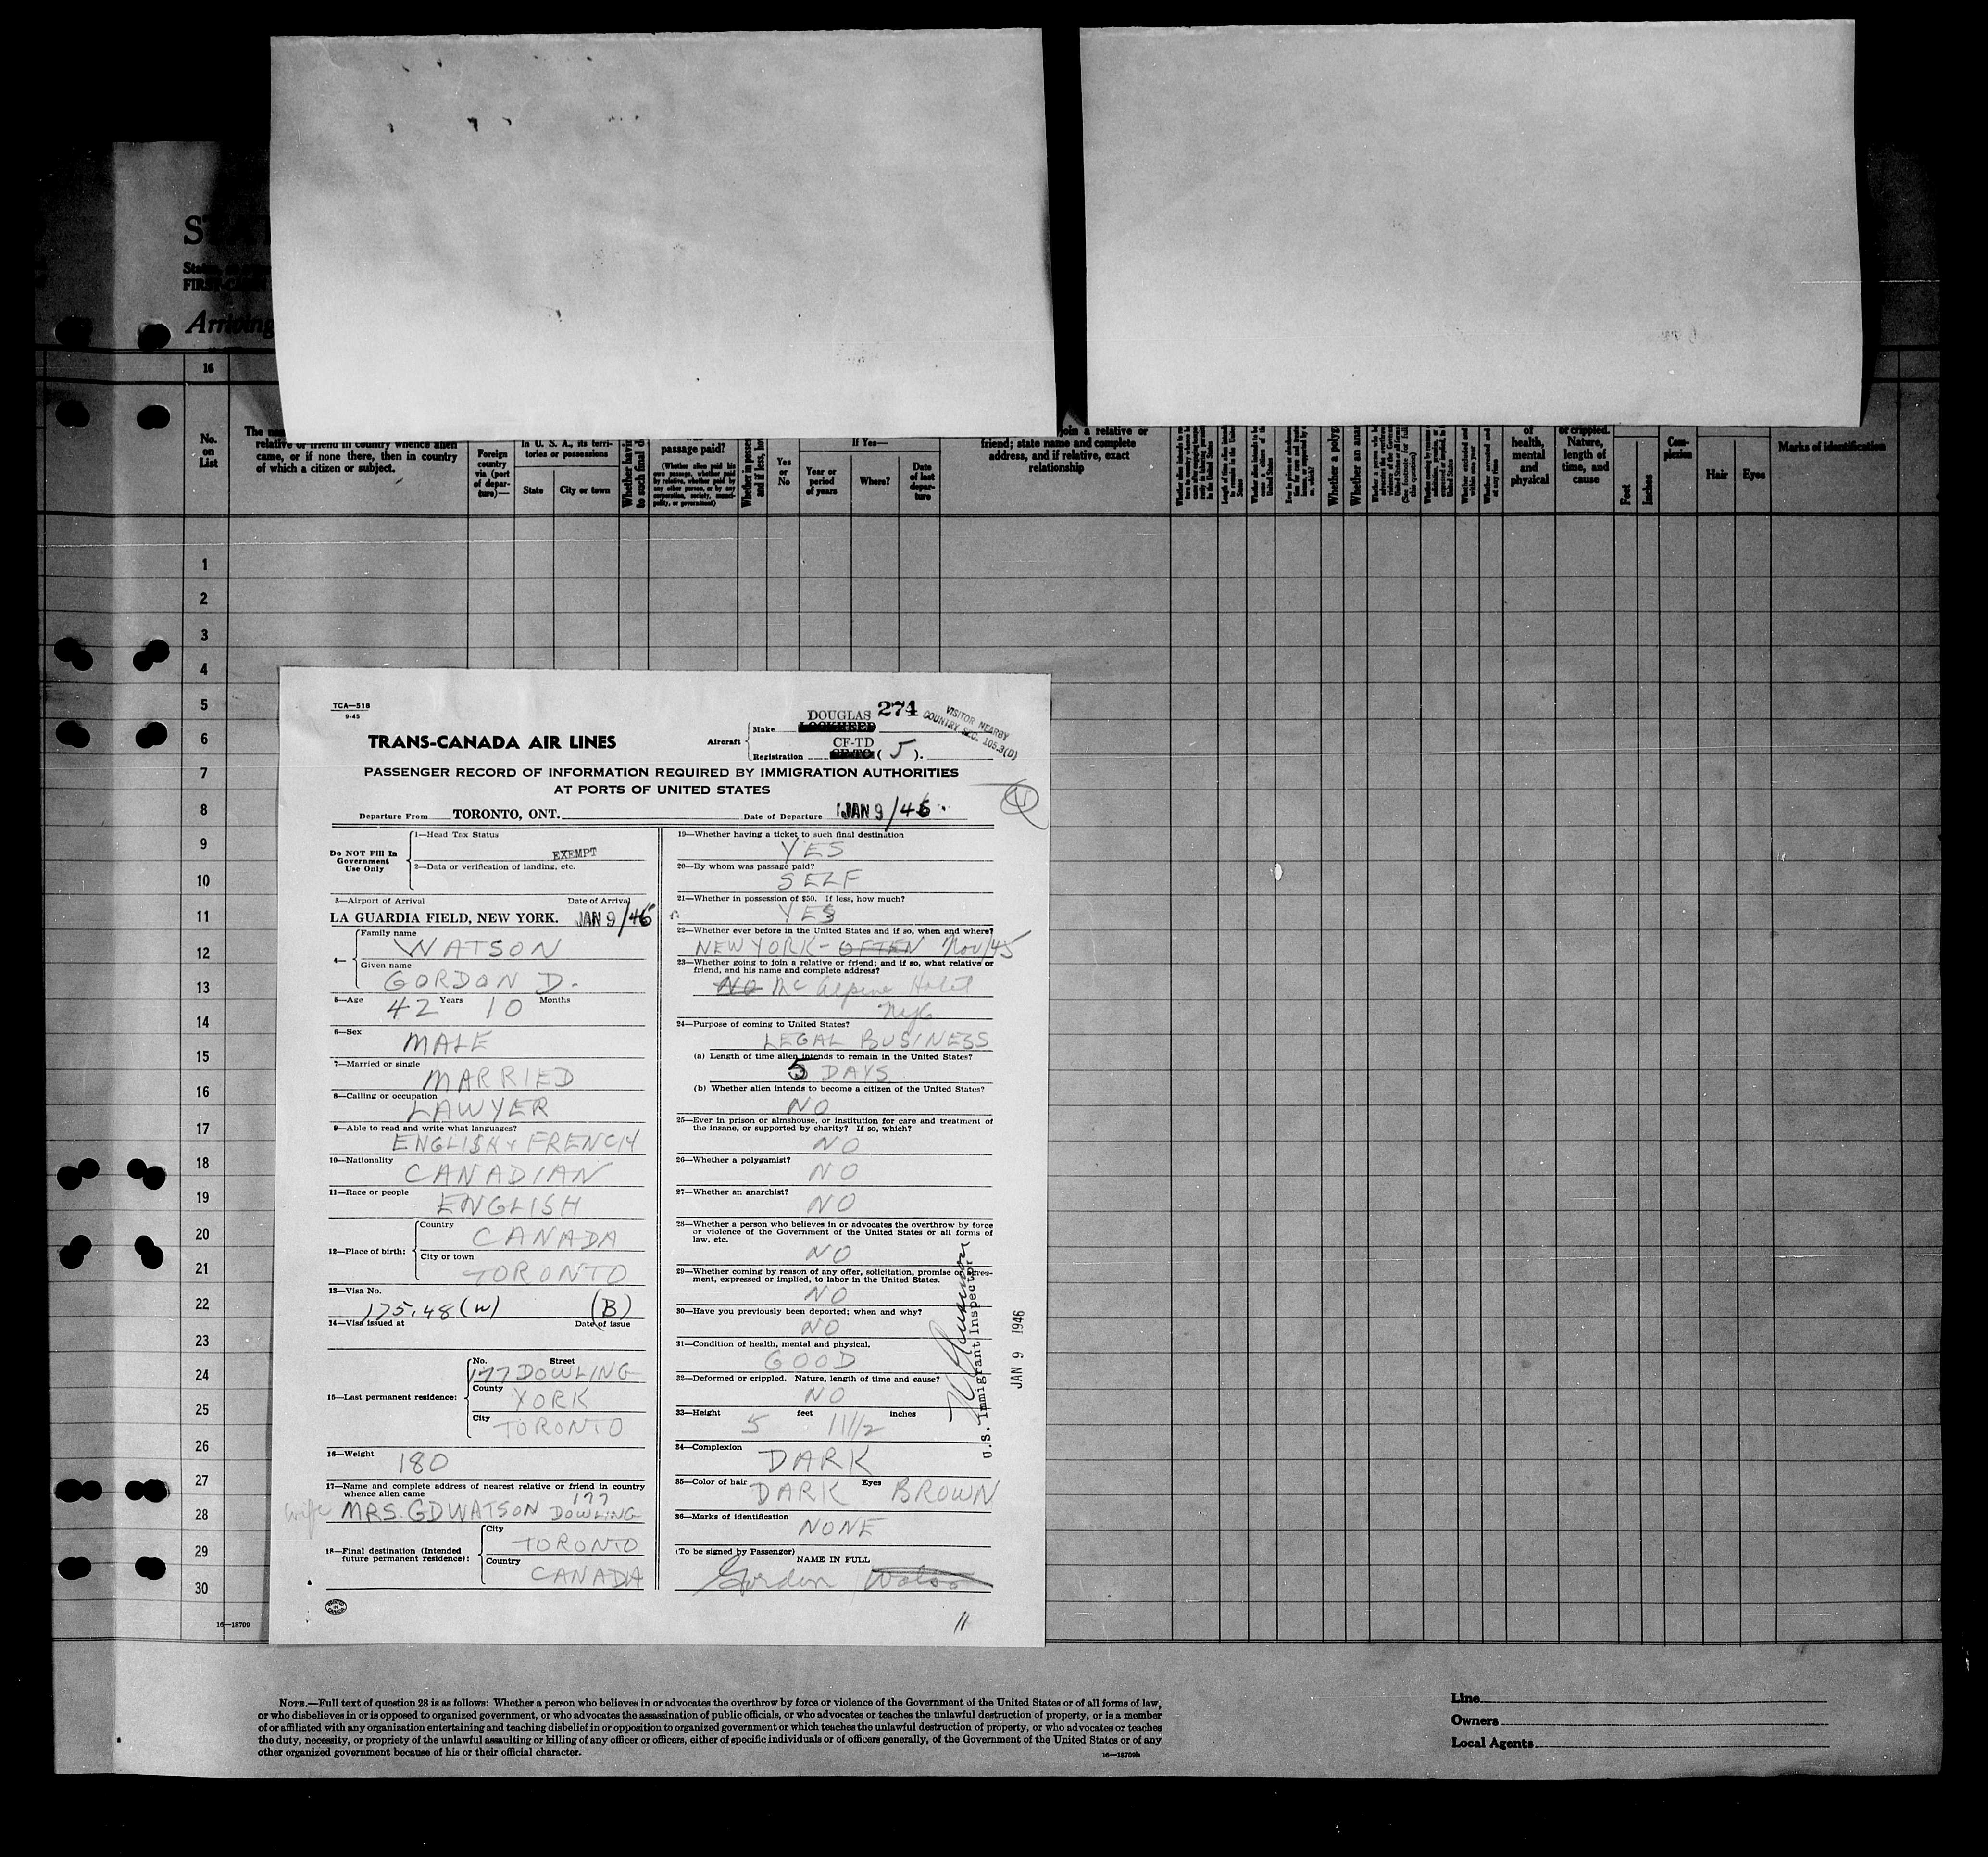 16
No.
on
List
relative or friend in country whence alien
came, or if none there, then in country
of which a citizen or subject.
Foreign
country
via (port
of depar-
ture)—
in U. S. A., its terri-
tories or possessions
State
City or town
passage paid?
(Whether alien paid his
own passage, whether paid
by relative, whether paid by
any other person, or by any
corporation, society, munici-
pality, or government)
Yes
or
No
If Yes—
Year or
period
of years
Where?
Date
of last
depar-
ture
join a relative or
friend; state name and complete
address, and if relative, exact
relationship
of
health,
mental
and
physical
or crippled.
Nature,
length of
time, and
cause
Feet
Inches
Com-
plexion
Hair
Eyes
Marks of identification
1
2
3
4
5
6
7
8
9
10
11
12
13
14
15
16
17
18
19
20
21
22
23
24
25
26
27
28
29
30
16—18709
TCA—518
9-45
TRANS-CANADA AIR LINES
Aircraft
Make DOUGLAS 274
LOCKHEED
Registration CF-TD
CF-TC (5).
VISITOR NEARBY
COUNTRY SEC. 105.3(D)
PASSENGER RECORD OF INFORMATION REQUIRED BY IMMIGRATION AUTHORITIES
AT PORTS OF UNITED STATES
Departure From TORONTO, ONT. Date of Departure JAN 9/46
Do NOT Fill In
Government
Use Only
1—Head Tax Status
EXEMPT
2—Data or verification of landing, etc.
3—Airport of Arrival Date of Arrival
LA GUARDIA FIELD, NEW YORK. JAN 9/46
4— Family name
WATSON
Given name
GORDON D.
5—Age 42 Years 10 Months
6—Sex
MALE
7—Married or single
MARRIED
8—Calling or occupation
LAWYER
9—Able to read and write what languages?
ENGLISH + FRENCH
10—Nationality
CANADIAN
11—Race or people
ENGLISH
12—Place of birth: Country
CANADA
City or town
TORONTO
13—Visa No.
175.48 (W) (B)
14—Visa issued at Date of issue
15—Last permanent residence: No. Street
177 DOWLING
County
YORK
City
TORONTO
16—Weight
180
17—Name and complete address of nearest relative or friend in country
whence alien came
wife MRS. GDWATSON 177 DOWLING
18—Final destination (Intended
future permanent residence):
City
TORONTO
Country
CANADA
19—Whether having a ticket to such final destination
YES
20—By whom was passage paid?
SELF
21—Whether in possession of $50. If less, how much?
YES
22—Whether ever before in the United States and if so, when and where?
NEW YORK - OFTEN Nov/45
23—Whether going to join a relative or friend; and if so, what relative or
friend, and his name and complete address?
NO Mc Alpine Hotel
NYC
24—Purpose of coming to United States?
LEGAL BUSINESS
(a) Length of time alien intends to remain in the United States?
5 DAYS
(b) Whether alien intends to become a citizen of the United States?
NO
25—Ever in prison or almshouse, or institution for care and treatment of
the insane, or supported by charity? If so, which?
NO
26—Whether a polygamist?
NO
27—Whether an anarchist?
NO
28—Whether a person who believes in or advocates the overthrow by force
or violence of the Government of the United States or all forms of
law, etc.
NO
29—Whether coming by reason of any offer, solicitation, promise or agree-
ment, expressed or implied, to labor in the United States.
NO
30—Have you previously been deported; when and why?
NO
31—Condition of health, mental and physical.
GOOD
32—Deformed or crippled. Nature, length of time and cause?
NO
33—Height 5 feet 11 1/2 inches
34—Complexion
DARK
35—Color of hair DARK Eyes BROWN
36—Marks of identification
NONE
(To be signed by Passenger)
NAME IN FULL
Gordon Watson
11
U.S. Immigrant Inspector
JAN 9 1946
NOTE.—Full text of question 28 is as follows: Whether a person who believes in or advocates the overthrow by force or violence of the Government of the United States or of all forms of law,
or who disbelieves in or is opposed to organized government, or who advocates the assassination of public officials, or who advocates or teaches the unlawful destruction of property, or is a member
of or affiliated with any organization entertaining and teaching disbelief in or opposition to organized government or which teaches the unlawful destruction of property, or who advocates or teaches
the duty, necessity, or propriety of the unlawful assaulting or killing of any officer or officers, either of specific individuals or of officers generally, of the Government of the United States or of any
other organized government because of his or their official character.
16—18709b
Line
Owners
Local Agents